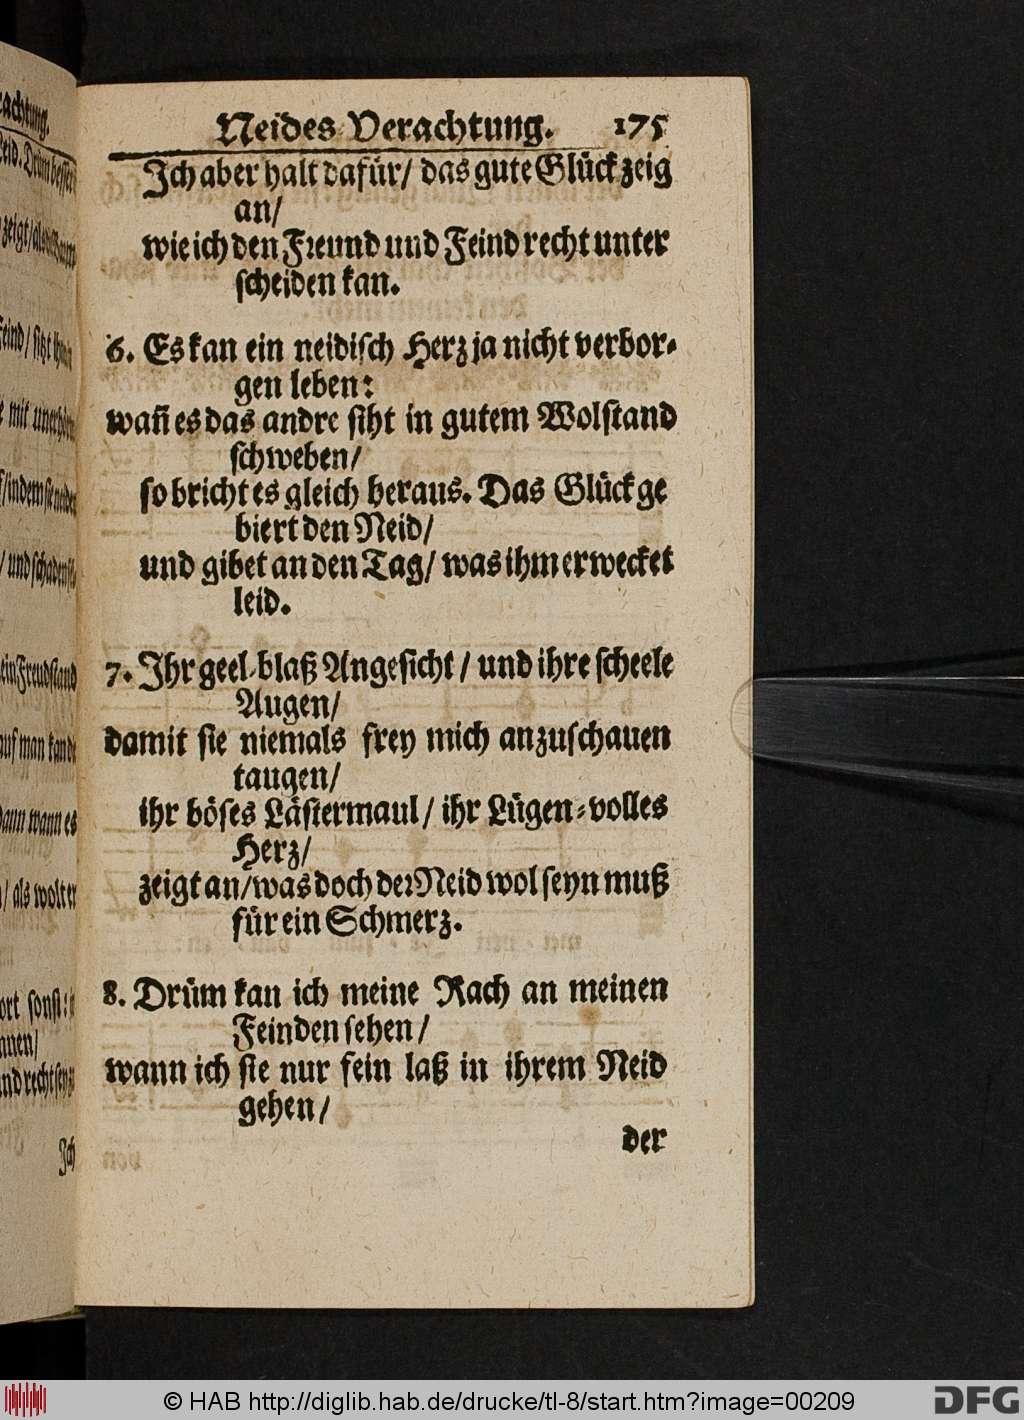 Neides Verachtung. 175
Ich aber halt dafür/ das gute Glück zeig
an/
wie ich den Freund und Feind recht unter
scheiden kan.
6. Es kan ein neidisch Herz ja nicht verbor-
gen leben:
wañ es das andre siht in gutem Wolstand
schweben/
so bricht es gleich heraus. Das Glück ge
biert den Neid/
und gibet an den Tag/ was ihm erwecket
leid.
7. Ihr geel-blaß Angesicht/ und ihre scheele
Augen/
damit sie niemals frey mich anzuschauen
taugen/
ihr böses Lästermaul/ ihr Lügen-volles
Herz/
zeigt an/ was doch der Neid wol seyn muß
für ein Schmerz.
8. Drüm kan ich meine Rach an meinen
Feinden sehen/
wann ich sie nur fein laß in ihrem Neid
gehen/
der
© HAB http://diglib.hab.de/drucke/tl-8/start.htm?image=00209
DFG